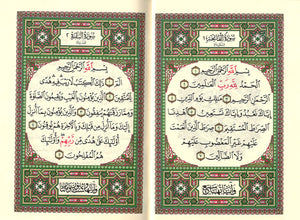 سُورَةُ الْفَاتِحَةِ ١
بِسْمِ اللَّهِ الرَّحْمَٰنِ الرَّحِيمِ
الْحَمْدُ لِلَّهِ رَبِّ الْعَالَمِينَ
الرَّحْمَٰنِ الرَّحِيمِ مَالِكِ يَوْمِ الدِّينِ
إِيَّاكَ نَعْبُدُ وَإِيَّاكَ نَسْتَعِينُ اهْدِنَا
الصِّرَاطَ الْمُسْتَقِيمَ صِرَاطَ الَّذِينَ أَنْعَمْتَ
عَلَيْهِمْ غَيْرِ الْمَغْضُوبِ عَلَيْهِمْ
وَلَا الضَّالِّينَ
سُورَةُ الْبَقَرَةِ ٢
بِسْمِ اللَّهِ الرَّحْمَٰنِ الرَّحِيمِ
الٓمٓ ذَٰلِكَ الْكِتَابُ لَا رَيْبَ فِيهِ هُدًى
لِلْمُتَّقِينَ الَّذِينَ يُؤْمِنُونَ بِالْغَيْبِ وَيُقِيمُونَ الصَّلَاةَ
وَمِمَّا رَزَقْنَاهُمْ يُنْفِقُونَ وَالَّذِينَ يُؤْمِنُونَ بِمَا أُنْزِلَ
إِلَيْكَ وَمَا أُنْزِلَ مِنْ قَبْلِكَ وَبِالْآخِرَةِ هُمْ يُوقِنُونَ
أُولَٰئِكَ عَلَىٰ هُدًى مِنْ رَبِّهِمْ وَأُولَٰئِكَ
هُمُ الْمُفْلِحُونَ